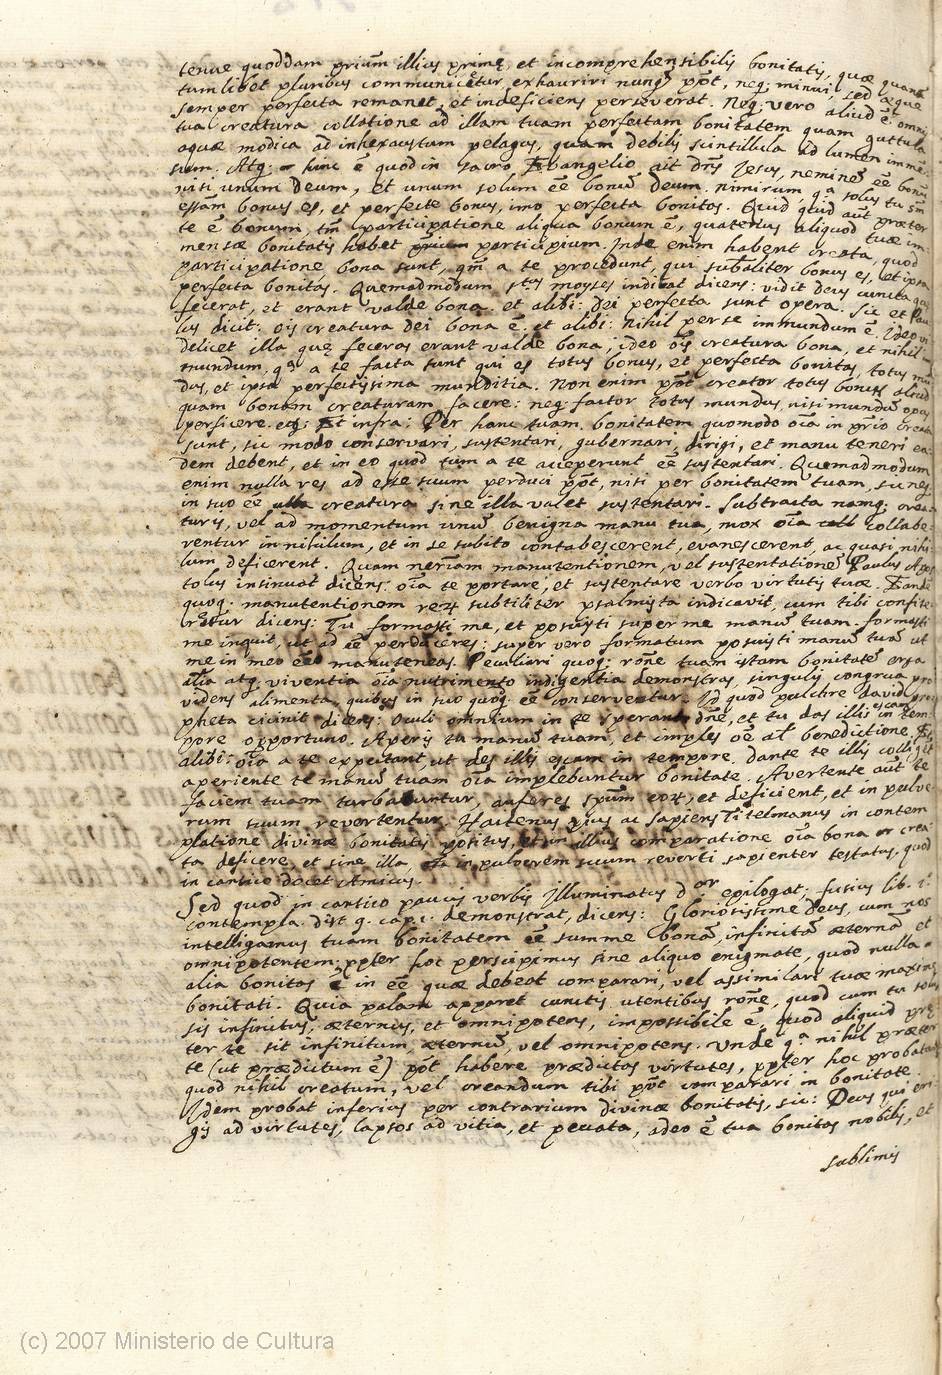 tenue quoddam prium̃ illius primę, et incomprehensibilis bonitatis, quæ quan-
tumlibet pluribus communicetur, exhauriri nunq̃ põt, neq; minui, sed æque
semper perfecta remanet, et indeficiens perseverat. Neq; vero aliud ẽ omnis
tua creatura collatione ad illam tuam perfectam bonitatem quam guttula
aquæ modica ad inhexaustum pelagus, quam debilis scintillula ad lumen immẽ-
sum. Atq; hinc ẽ quod in sacro Evangelio ait Dñs Jesus, neminẽ ẽe bonũ
nisi unum Deum, et unum solum ẽe bonũ Deum. nimirum, qª solus tu
essãm bonus es, et perfecte bonus, imo perfecta bonitas. Quid quid aũt præter
te ẽ bonum, tm̃ participatione aliqua bonum ẽ, quatenus aliquod tuæ im-
mensæ bonitatis habet participium. Inde enim habent creata, quod
participatione bona sunt, qm̃ a te procedunt, qui subãliter bonus es, et ipsa
perfecta bonitas. Quemadmodum stus moyses indicat dicens: vidit Deus cuncta quę
fecerat, et erant valde bona. et alibi: Dei perfecta sunt opera. Sic et Pau-
lus dicit: oĩs creatura dei bona ẽ. et alibi: nihil per se immundum ẽ. Ideo vi-
delicet illa quę feceras erant valde bona; ideo oĩs creatura bona, et nihil im-
mundum, qª a te facta sunt qui es totus bonus, et perfecta bonitas, totus mũ-
dus, et ipsa perfectissima munditia. Non enim põt creator totus bonus aliud
quam bonam creaturam facere: neq; factor totus mundus, nisi mundũ opus
perficere. Et infra: Per hanc tuam bonitatem quomodo oĩa in prio creata
sunt, sic modo conservari, sustentari, gubernari, dirigi, et manu teneri ea-
dem debent, et in eo quod sum a te acceperunt ẽe sustentari. Quemadmodum
enim nulla res ad esse suum perduci põt, nisi per bonitatem tuam, sic neq;
in suo ẽe ulla creatura sine illa valet sustentari. Subtracta namq; crea-
turis, vel ad momentum unũ benigna manu tua, mox oĩa collabe-
rentur in nihilum, et in se subito contabescerent, evanescerent, ac quasi nihi-
lum deficerent. Quam neriam manutentionem, vel sustentationẽ Paulus Apos-
tolus insinuat dicens: oĩa te portare, et sustentare verbo virtutis tuæ. Eandẽ
quoq; manutentionem subtiliter psalmista indicavit, cum tibi confite-
retur dicens: Tu formasti me, et posuisti super me manũ tuam. formasti
me inquit, ut ad ẽe perduceres: super vero formatum posuisti manũ tuã ut
me in meo ẽe manuteneas. Peculiari quoq; rõne tuam istam bonitatẽ erga
alĩa atq; viventia oĩa nutrimento indigentia demonstras, singulis congrua pro-
videns alimenta, quibus in suo quoq; ẽe conserventur. Id quod pulchre David pro-
pheta cicinit dicens: Oculi omnium in te sperant dñe, et tu das illis escam in tem-
pore opportuno. Aperis tu manũ tuam, et imples oẽ al̃ benedictione. Et
alibi: oĩa a te expectant, ut des illis escam in tempore. Dante te illis colligẽt
aperiente te manũ tuam oĩa implebuntur bonitate. Avertente aũt te
faciem tuam turbabuntur, auferes spũm eoꝝ, et deficient, et in pulve-
rum suum revertentur. Hactenus pius ac sapiens Titelmanus in contem-
platione divinæ bonitatis positus, et in illius comparatione oĩa bona crea-
ta deficere, et sine illa, in pulverem suum reverti sapienter testatus, quod
in cantico docet Amicus.
Sed quod in cantico paucis verbis Illuminatus Dor epilogat; fusius lib. 1:
contempla. dist. 9. cap. 1. demonstrat, dicens: Gloriosissime Deus, cum nos
intelligamus tuam bonitatem ẽe summe bonã, infinitã æternã et
omnipotentem; ppter hoc percipimus sine aliquo enigmate, quod nulla
alia bonitas ẽ in ẽe quæ debeat comparari, vel assimilari tuæ maximę
bonitati. Quia palam apparet cunctis utentibus rõne, quod cum tu solus
sis infinitus, æternus, et omnipotens, impossibile ẽ, quod aliquid prę-
ter te sit infinitum, æternũ, vel omnipotens. Unde qª nihil præter
te (ut prædictum ẽ) põt habere prædictas virtutes, ppter hoc probatur
quod nihil creatum, vel creandum tibi põt comparari in bonitate.
Idem probat inferius per contrarium divinæ bonitatis, sic: Deus qui eri-
gis ad virtutes, lapsos ad vitia, et peccata, adeo ẽ tua bonitas nobilis, et
sublimis
(c) 2007 Ministerio de Cultura